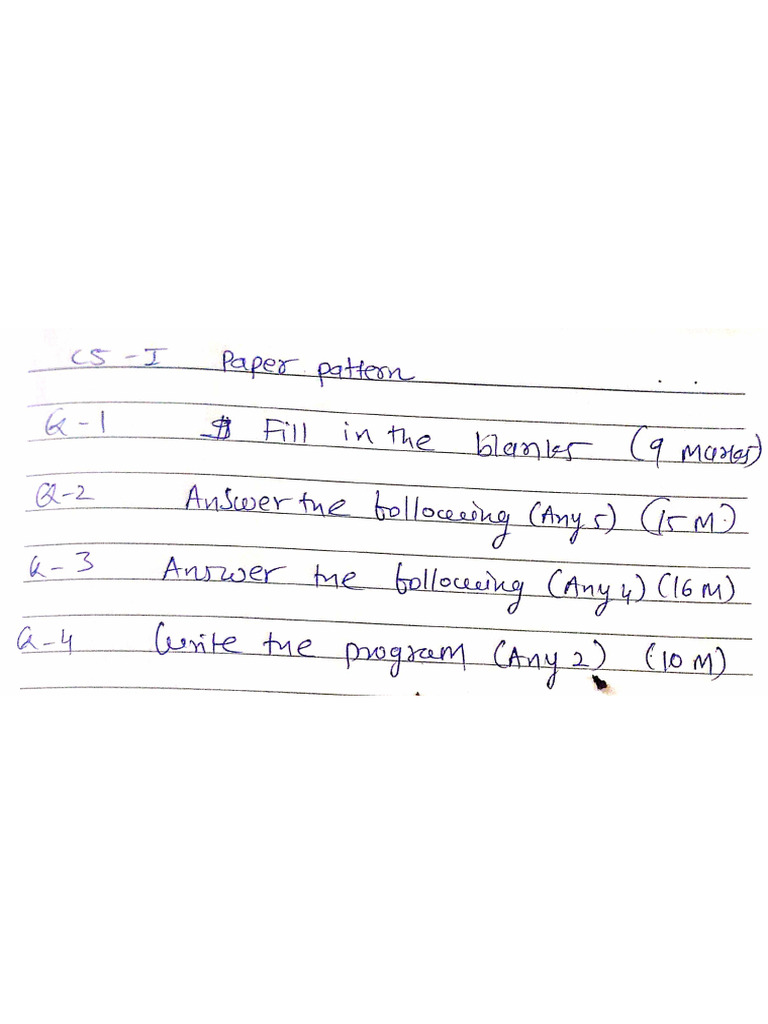 CS - I Paper pattern
Q-1 Fill in the blanks (9 marks)
Q-2 Answer the following (Any 5) (15 M)
Q-3 Answer the following (Any 4) (16 M)
Q-4 Write the program (Any 2) (10 M)